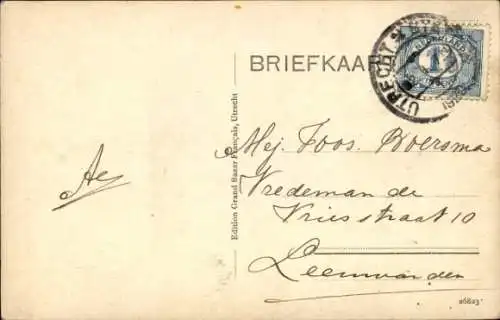 BRIEFKAART
UTRECHT
1
Mej. Joos. Boersma
Vredeman de
Vriesstraat 10
Leeuwarden
Edition Grand Bazar Français, Utrecht
26823